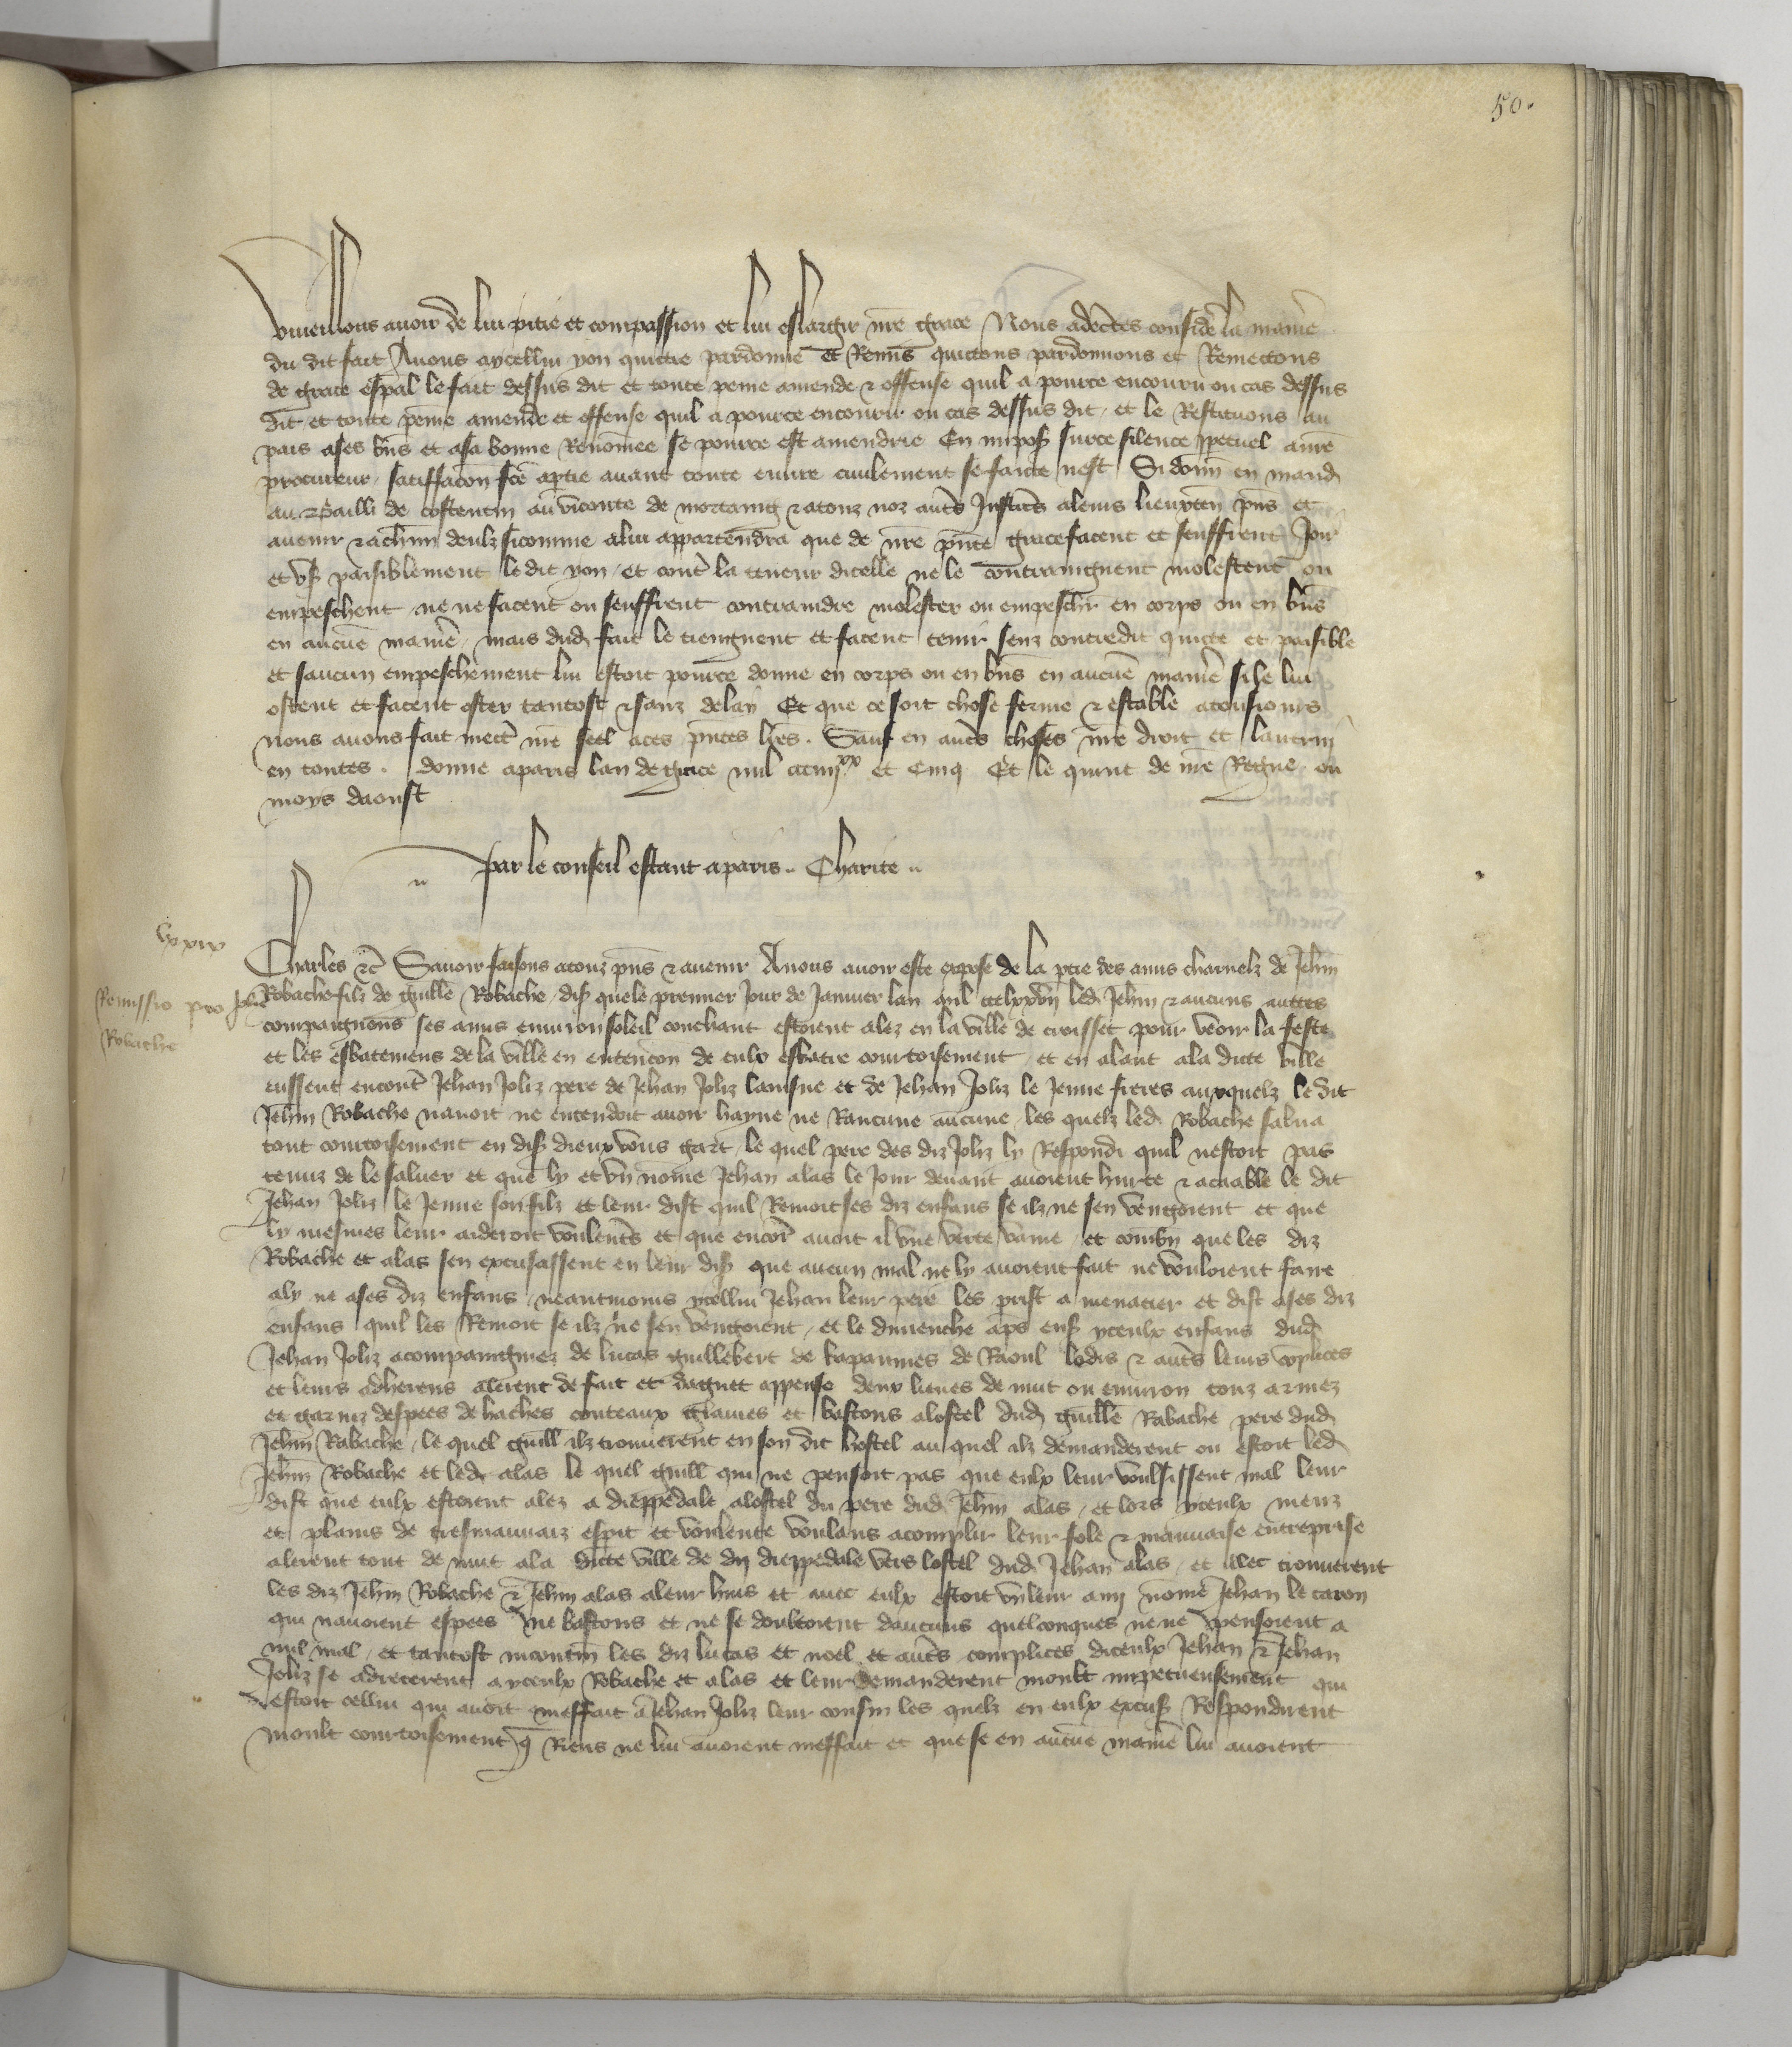 50.
vueillons avoir de lui pitie et compassion et lui eslargir nr̄e grace Nous adec̄tes consideŕ la manieŕ
du dit fait Avons aycellui yon quictie pardonne et Remis quictons pardonnons et Remectons
de grace esp̄al le fait dessus dit et toute peine amende & offense quil a pource encouru ou cas dessus
dit et toute peine amende et offense quil a pource encourir ou cas dessus dit / et le Restituons au
pais ases bn̄s et asa bonne Renom̄ee se pource est amendrie En imposs̄ surce silence pp̄etuel anr̄e
procureur / satiffacōn fc̄e aptie avant toute euvre civilement se faicte nest Si donn̄ en mand̄
au Bailli de costentin au viconte de mortaing & atouz noz autr̄s Justic̄rs aleurs lieuxten̄ pn̄s et
avenir & achūn deulz sicomme alui appartendra que de nr̄e pn̄te grace facent et seuffrent Joir
et us̄ paisiblement le dit yon / et contr̄ la teneur dicelle ne le contraingnent molestent ou
empeschent ne ne facent ou seuffrent contraindre molester ou empeschr̄ en corps ou en bn̄s
en aucun̄e manier̄e / mais dud̄ fait le tiengnent et facent tenir senz contredit quicte et paisible
et saucun empeschement lui estoit pource donne en corps ou en bn̄s en aucun̄e manier̄e si le lui
ostent et facent oster tantost & sanz delay Et que ce soit chose ferme & estable atousiours
nous avons fait mectr̄ nr̄e seel aces pn̄tes lr̄es . Sauf en autr̄s choses nr̄e droit et lautruy
en toutes . donne aparis lan de grace mil ccciiij xx et Cinq Et le quint de nr̄e Regne ou
moys daoust
par le conseil estant aparis .. Charite ..
lxxix
Charles &c̄ Savoir faisons atouz pn̄s & avenir Anous avoir este expose de la ptie des amis charnelz de Jehn̄
Remissio pro Joh̄e
Robache filz de guille Robache / dis̄ quele premier Jour de Janvier lan mil ccclxxviij led̄ Jehn̄ & aucuns auttes
Robache
compaignons ses amis environ soleil couchant estoient alez en la ville de croisset pour veoir la feste
et les esbatemens de la ville en entencōn de eulx esbatre courtoisement / et en alant ala dicte ville
eussent encontr̄ Jehan Joliz pere de Jehan Joliz lainsne et de Jehan Joliz le Jeune freres auxquelz le dit
Jehn̄ Robache navoit ne entendoit avoir hayne ne Rancune aucune / les quelz led̄ Robache salua
tout courtoisement en dis̄ dieux vous gart / le quel pere des diz Joliz ly Respondi quil nestoit pas
tenuz de le saluer et que ly et un nom̄e Jehan alas le Jour devant avoient hurte & acaable le dit
Jehan Joliz le Jeune son filz et leur dist quil Remoit ses diz enfans se ilz ne sen vengoient et que
ly mesmes leur aideroit voulentr̄s et que encor̄ avoit il une verte vaine / et combn̄ que les diz
Robache et alas sen excusassent en leur dis̄ que aucun mal ne ly avoient fait ne vouloient faire
aly ne ases diz enfans / neantmoins ycellui Jehan leur pere les prist a menacier et dist ases diz
enfans quil les Remoit se ilz ne sen vengoient / et le dimenche aps̄ ens̄ yceulx enfans dud̄
Jehan Joliz acompaingniez de lucas guillebert de kapaumes de Raoul lodis & autr̄s leurs cōplices
et leurs adherens alerent de fait et daguet appense deux lieues de nuit ou environ touz armez
et garniz despees de haches couteaux glaives et bastons alostel dud̄ guille Rabache pere dud̄
Jehn̄ Rabache / le quel guill̄ ilz trouverent en son dit hostel au quel ilz demanderent ou estoit led̄
Jehn̄ Robache et led̄ alas le quel guill̄ qui ne pensoit pas que eulx leur voulsissent mal leur
dist que eulx estoient alez a dieppedale alostel du pere dud̄ Jehn̄ alas / et lors yceulx meuz
et plains de tresmauvaiz esp̄it et voulente voulans acomplir leur fole & mauvaise entreprise
alerent tout de nuit ala dicte ville de dieppedale vers lostel dud̄ Jehan alas / et illec trouverent
les diz Jehn̄ Robache & Jehn̄ alas aleur huis et avec eulx estoit un leur amy nom̄e Jehan le caron
qui navoient espees ne bastons et ne se doubtoient daucuns quelconques ne ne pensoient a
nul mal / et tantost incontin̄ les diz lucas et noel et autr̄s complices diceulx Jehan & Jehan
Joliz se adrecerent a yceulx Robache et alas et leur demanderent moult impetueusement qui
estoit cellui qui avoit meffait a Jehan Joliz leur cousin les quelz en eulx excus̄ Respondirent
moult courtoisement q̄ Riens ne lui avoient meffait et que se en aucun̄e manier̄e lui avoient